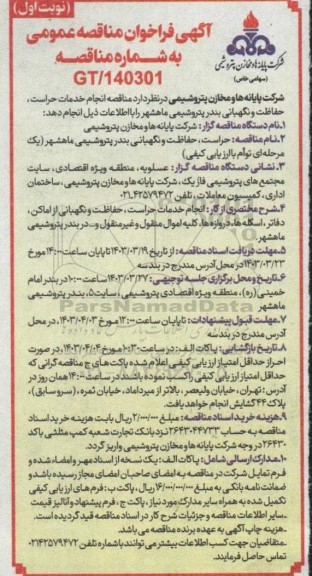 (نوبت اول)
آگهی فراخوان مناقصه عمومی
به شماره مناقصه
GT/140301
شرکت پایانه ها و مخازن پتروشیمی
(سهامی خاص)
شرکت پایانه ها و مخازن پتروشیمی در نظر دارد مناقصه انجام خدمات حراست ،
حفاظت و نگهبانی بندر پتروشیمی ماهشهر را با اطلاعات ذیل انجام دهد:
۱.نام دستگاه مناقصه گزار : شرکت پایانه ها و مخازن پتروشیمی
۲.نام مناقصه: حراست ، حفاظت و نگهبانی بندر پتروشیمی ماهشهر (یک
مرحله ای توأم با ارزیابی کیفی)
۳. نشانی دستگاه مناقصه گزار : عسلویه ، منطقه ویژه اقتصادی ، سایت
مجتمع های پتروشیمی فاز یک ، شرکت پایانه ها و مخازن پتروشیمی ، ساختمان
اداری ، کمیسیون معاملات ، تلفن ۰۲۱۴۲۵۷۹۴۷۲
۴.شرح مختصری از کار : انجام خدمات حراست ، حفاظت و نگهبانی از اماکن ،
دفاتر ، اسکله ها ، دروازه ها ، کلیه اموال منقول و غیر منقول و... در بندر پتروشیمی
ماهشهر
۵.مهلت دریافت اسناد مناقصه : از تاریخ ۱۴۰۳/۰۳/۱۹ تا پایان ساعت ۱۴:۰۰ مورخ
۱۴۰۳/۰۳/۲۳ در محل آدرس مندرج در بند سه
۶.تاریخ و محل برگزاری جلسه توجیهی: ۱۴۰۳/۰۳/۲۷ ساعت ۱۰:۰۰ در بندر امام
خمینی (ره) ، منطقه ویژه اقتصادی پتروشیمی ، سایت ۵، بندر پتروشیمی
ماهشهر
۷.مهلت قبول پیشنهادات : تا پایان ساعت ۱۳:۰۰ مورخ ۱۴۰۳/۰۴/۰۳، در محل
آدرس مندرج در بند سه
۸.تاریخ بازگشایی: پاکات الف : در ساعت ۱۰:۳۰ مورخ ۱۴۰۳/۰۴/۰۴، در صورت
احراز حداقل امتیاز ارزیابی کیفی اعلام شده پاکت های ج مناقصه گرانی که
حداقل امتیاز ارزیابی کیفی را کسب نموده باشند در ساعت ۱۴:۰۰ همان روز در
آدرس : تهران ، خیابان ولیعصر ، بالاتر از میرداماد، خیابان ثمره ، (سرو سابق) ،
پلاک ۴۴ گشایش انجام خواهد یافت.
۹.هزینه خرید اسناد مناقصه : مبلغ ۲/۰۰۰/۰۰۰ ریال بابت هزینه خرید اسناد
مناقصه به حساب ۲۶۴۳۰۴۴۷۳۳ نزد بانک تجارت شعبه کمپ مثلثی با کد
۲۶۴۳۰ در وجه شرکت پایانه ها و مخازن پتروشیمی واریز گردد.
۱۰.مدارک ارسالی شامل : پاکات الف : یک نسخه از اسناد مهر و امضاء شده و
فرم تمایل شرکت در مناقصه به امضای صاحبان امضای مجاز رسیده باشد و
ضمانت نامه بانکی به مبلغ ۱۶/۰۰۰/۰۰۰/۰۰۰ ریال ، پاکت ب : فرم های ارزیابی کیفی
تکمیل شده به همراه سایر مدارک مورد نیاز ، پاکت ج ، فرم پیشنهاد و آنالیز قیمت
.سایر اطلاعات مناقصه و جزئیات شرح کار در اسناد مناقصه قید گردیده است.
.هزینه چاپ آگهی به عهده برنده مناقصه می باشد.
.متقاضیان جهت کسب اطلاعات بیشتر می توانند با شماره تلفن ۰۲۱۴۲۵۷۹۴۷۲
تماس حاصل فرمایند.
ParsNamadData